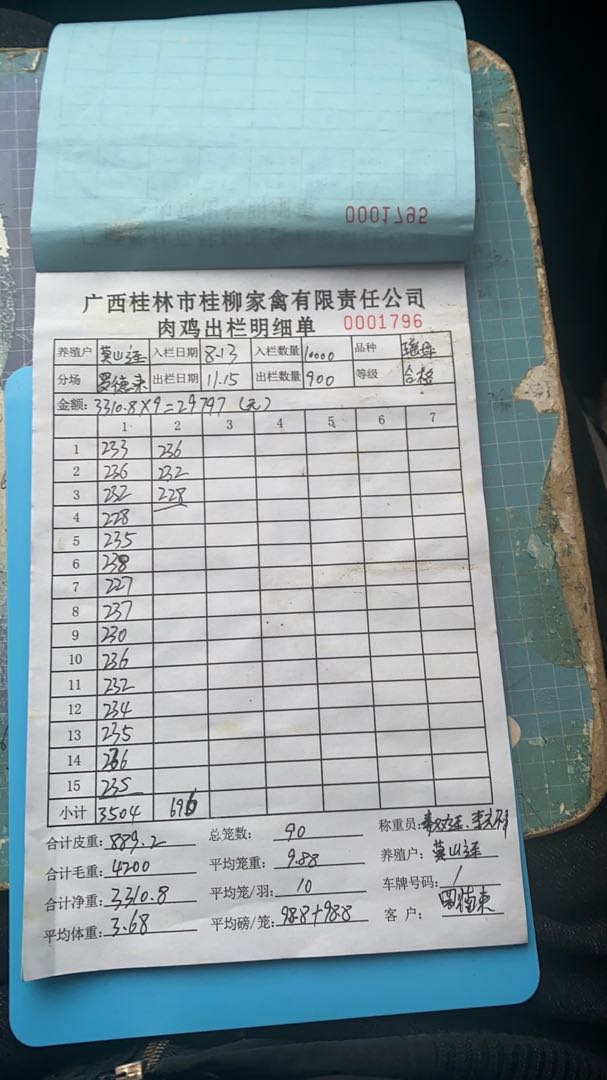 0001795
广西桂林市桂柳家禽有限责任公司
肉鸡出栏明细单 0001796
养殖户 莫山连 入栏日期 8.13 入栏数量 10000 品种 瑶母
分场 罗德来 出栏日期 11.15 出栏数量 900 等级 合格
金额: 3310.8×9=29797(元)
1 2 3 4 5 6 7
1 233 236
2 236 232
3 232 228
4 228
5 235
6 238
7 227
8 237
9 230
10 236
11 232
12 234
13 235
14 236
15 235
小计 3504 696
合计皮重: 889.2 总笼数: 90 称重员:
合计毛重: 4200 平均笼重: 9.88 养殖户: 莫山连
合计净重: 3310.8 平均笼/羽: 10 车牌号码: /
平均体重: 3.68 平均磅/笼: 98.8+98.8 客户: